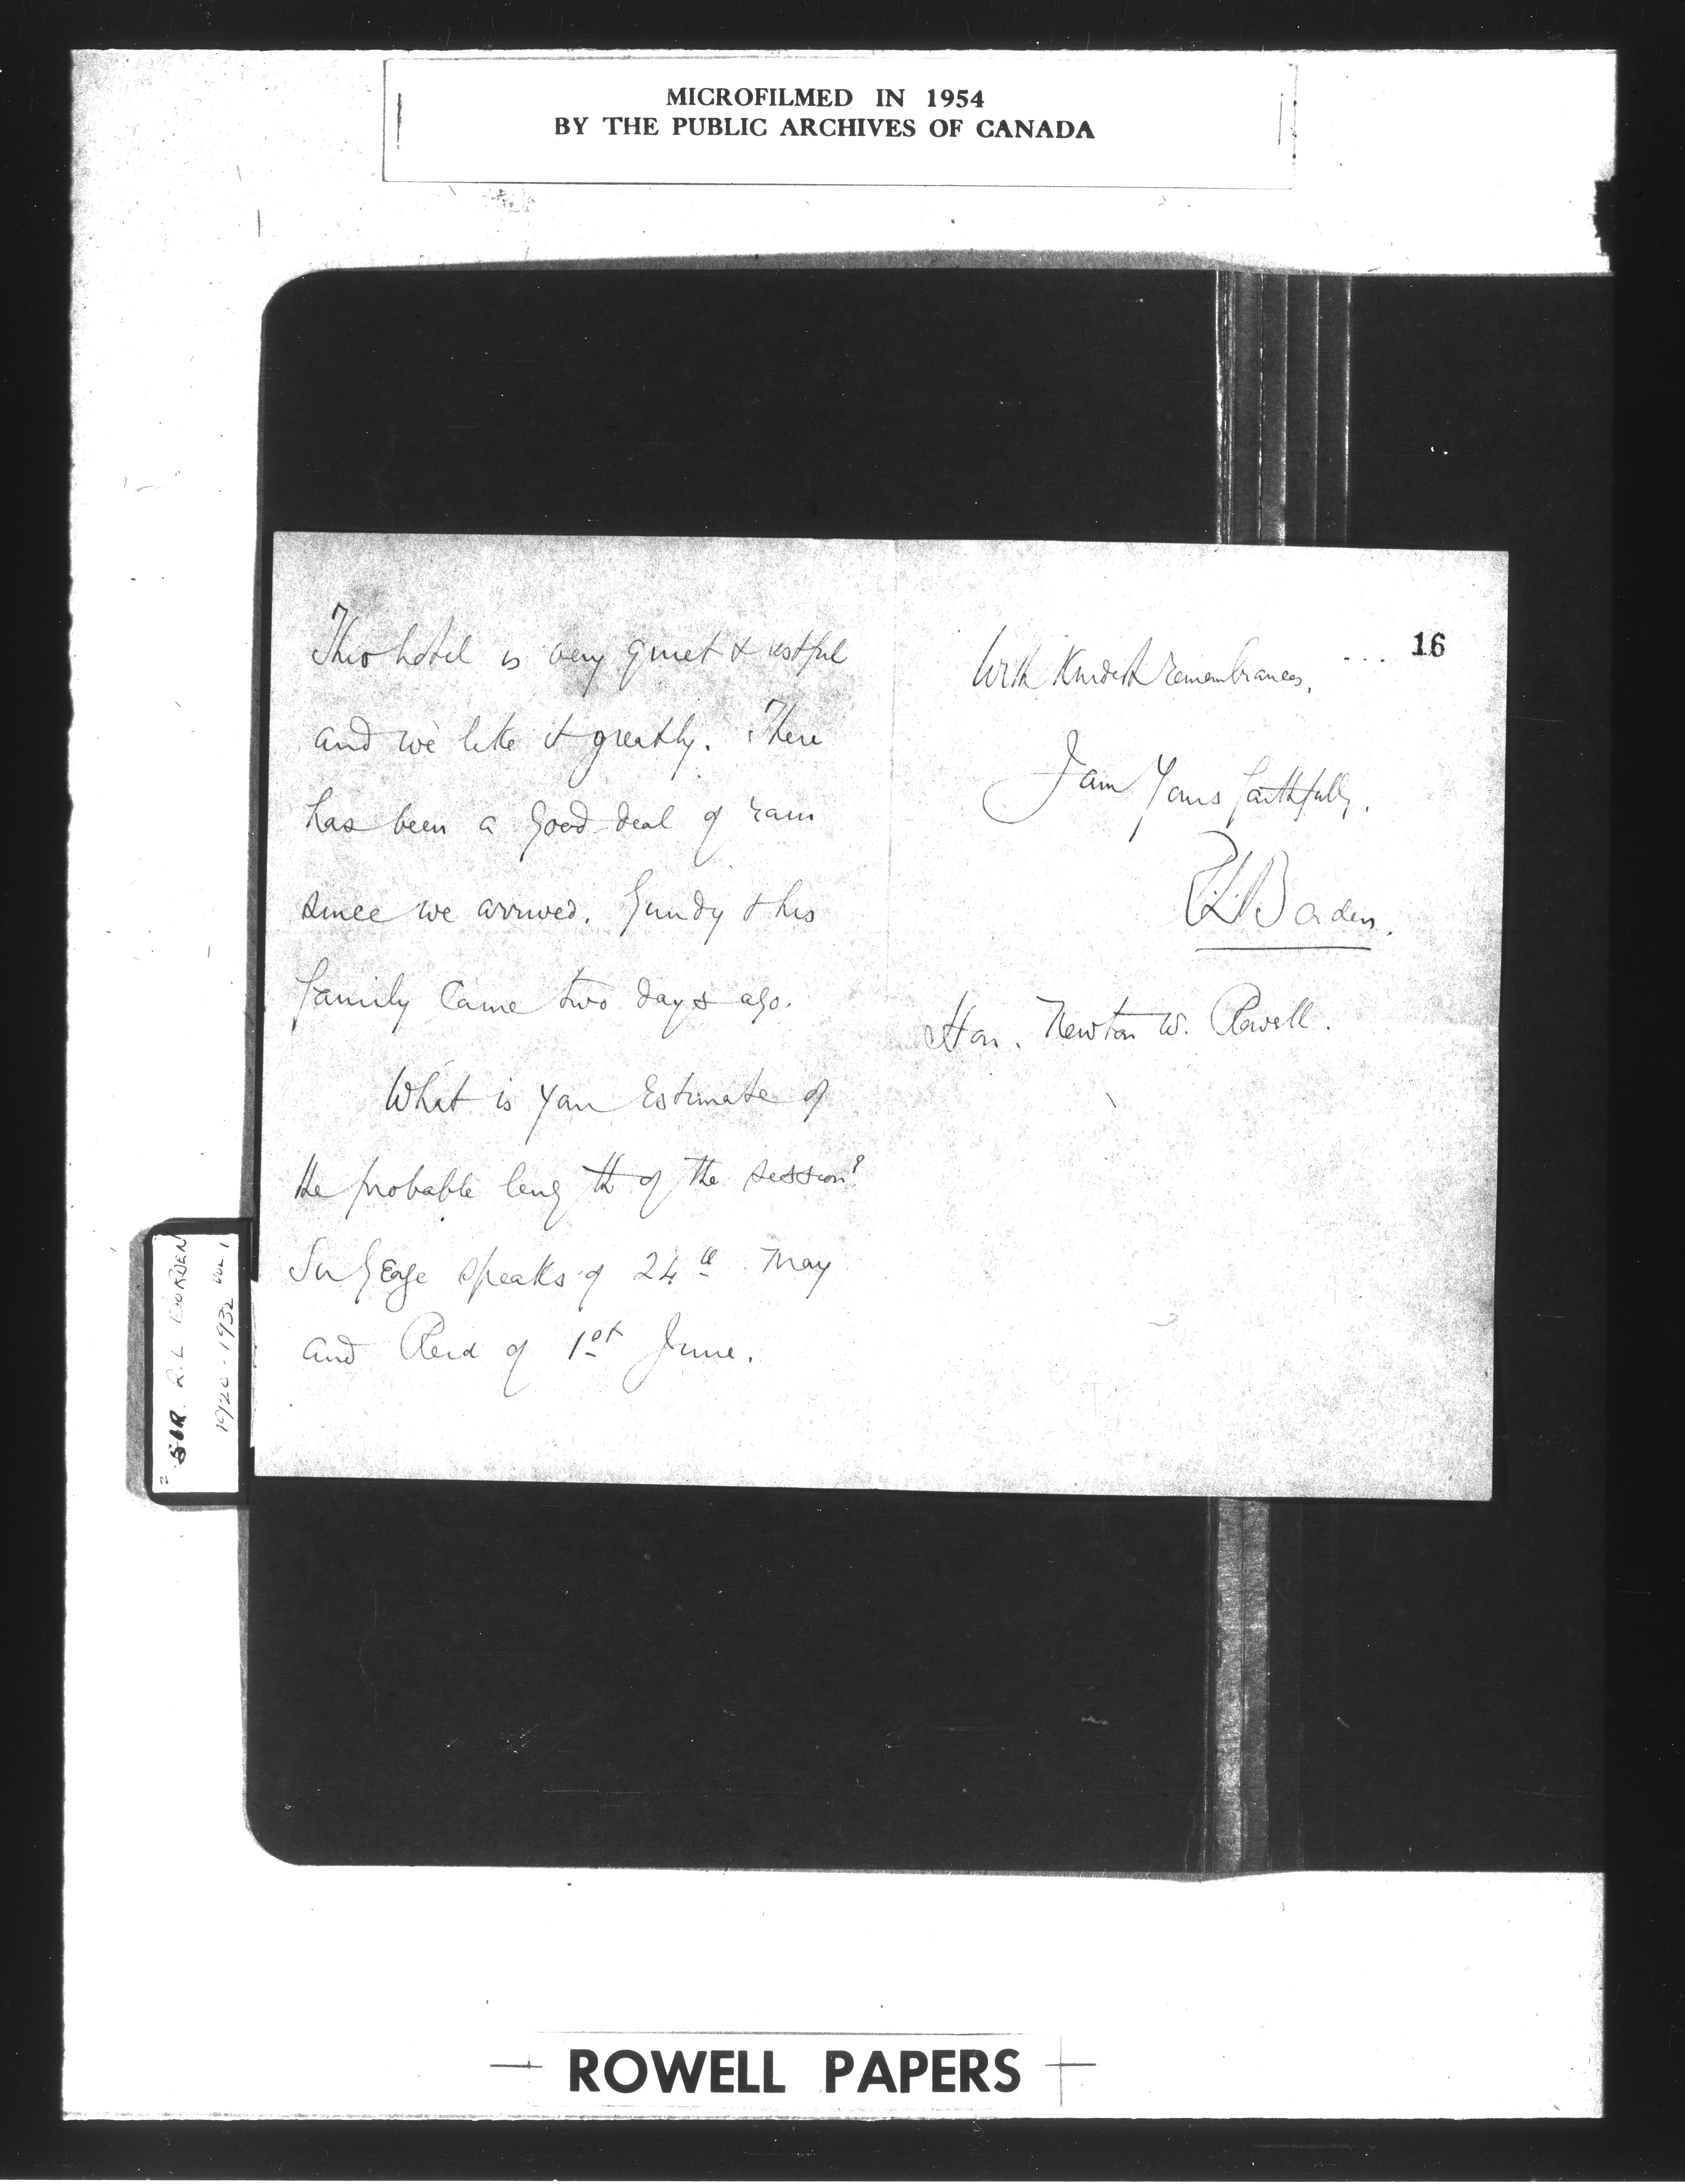 MICROFILMED IN 1954
BY THE PUBLIC ARCHIVES OF CANADA
This hotel is very quiet & restful
and we like it greatly. There
has been a good deal of rain
since we arrived. Gundy & his
family came two days ago.
What is your estimate of
the probable length of the session?
Sir George speaks of 24th May
and Reid of 1st June.
16
With kindest remembrances,
I am Yours faithfully,
R.L. Borden.
Hon. Newton W. Rowell.
SIR R. L BORDEN
1920-1932 VOL 1
ROWELL PAPERS